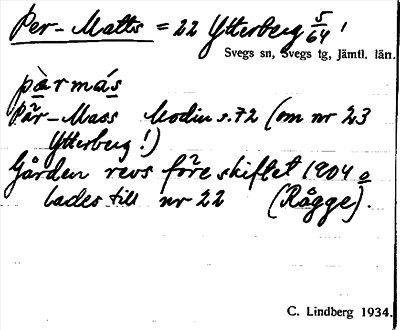 Per-Matts = 22 Ytterberg 5/64!
Svegs sn, Svegs tg, Jämtl. län.
pàrmás
Pår-Mass Modin s.72 (om nr 23
Ytterberg!)
Gården revs före skiftet 1904 o
lades till nr 22 (Rågge).
C. Lindberg 1934.